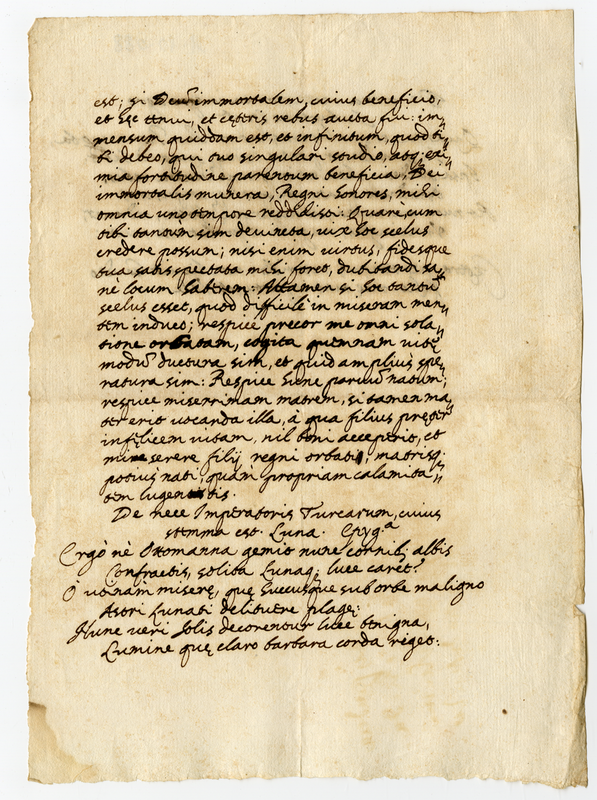 est; si Deũ immortalem, cuius beneficio,
et hęc tenui, et cęteris rebus aucta fui: im„
mensum quiddam est, et infinitum, quod ti„
bi debeo, qui tuo singulari studio, atq; exi„
mia fortitudine parentum beneficia, Dei
immortalis munera, Regni honores, mihi
omnia uno tempore reddidisti: Quare cum
tibi tantum sim devincta, vix hoc scelus
credere possum; nisi enim virtus, fidesque
tua satis spectata mihi foret, dubitandi sa„
nè locum haberem: Attamen si hoc tantũ
scelus esset, quod difficilè in miseram men„
tem induco; respice precor me omni sola„
tione orbatam, cogita quemnam vitę
modũ ductura sim, et quid amplius spe„
ratura sim: Respice hunc parvũ natum;
respice miserrimam matrem, si tamen ma„
ter erit vocanda illa, à qua filius pręter
infęlicem vitam, nil boni acceperit, et
miserere filij regni orbati, matrisq.
potius nati, quàm propriam calamita„
tem lugentis.
De nece Imperatoris Turcarum, cuius
stemma est Luna. Epyg.a
Ergò nè Ottomanna gemit nunc cornib; albis
Confractis, solita Lunaq; luce caret?
O utinam miserę, quę huc usque sub orbe maligno
Astri Lunati delituere plagę;
Nunc veri solis decorentur luce benigna,
Lumine quę claro barbara corda riget.